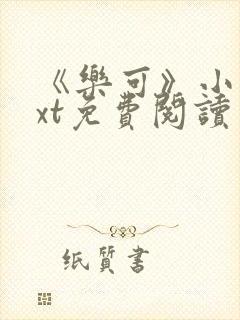 《樂可》小
xt免費閱讀
纸質書